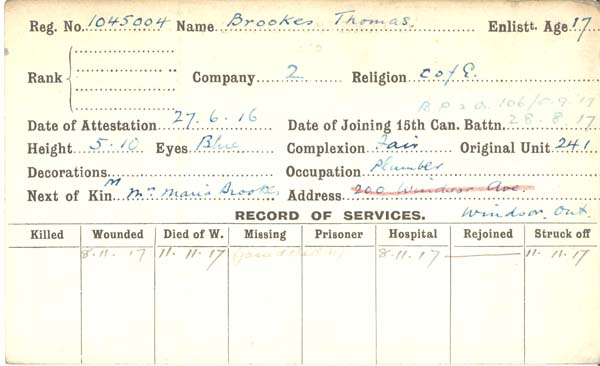 Reg. No. 1045004 Name Brookes Thomas. Enlistt. Age 17
Rank Company 2 Religion C of E.
B.P. 2 O. 106/5.9.17
Date of Attestation 27.6.16 Date of Joining 15th Can. Battn. 28.8.17
Height 5.10 Eyes Blue Complexion Fair Original Unit 241
Decorations Occupation Plumber
Next of Kin Mrs Maria Brookes Address 200 Windsor Ave.
RECORD OF SERVICES. Windsor, Ont.
Killed Wounded Died of W. Missing Prisoner Hospital Rejoined Struck off
8.11.17 11.11.17 8.11.17 11.11.17